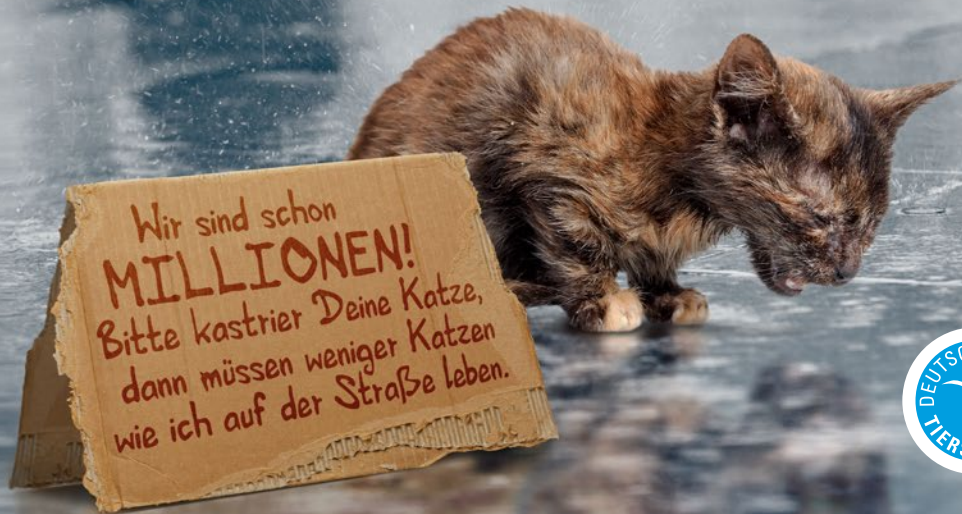 Wir sind schon
MILLIONEN!
Bitte kastrier Deine Katze,
dann müssen weniger Katzen
wie ich auf der Straße leben.